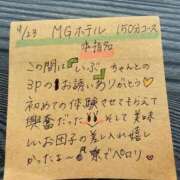 9/23 MGホテル 150分コース
本指名
この間はいぶちゃんとの
3Pのお誘いありがとう
初めての体験させてもらえて
興奮だった そして美味
しいお団子の差し入れ嬉し
かったぁ〜 寮でペロリ